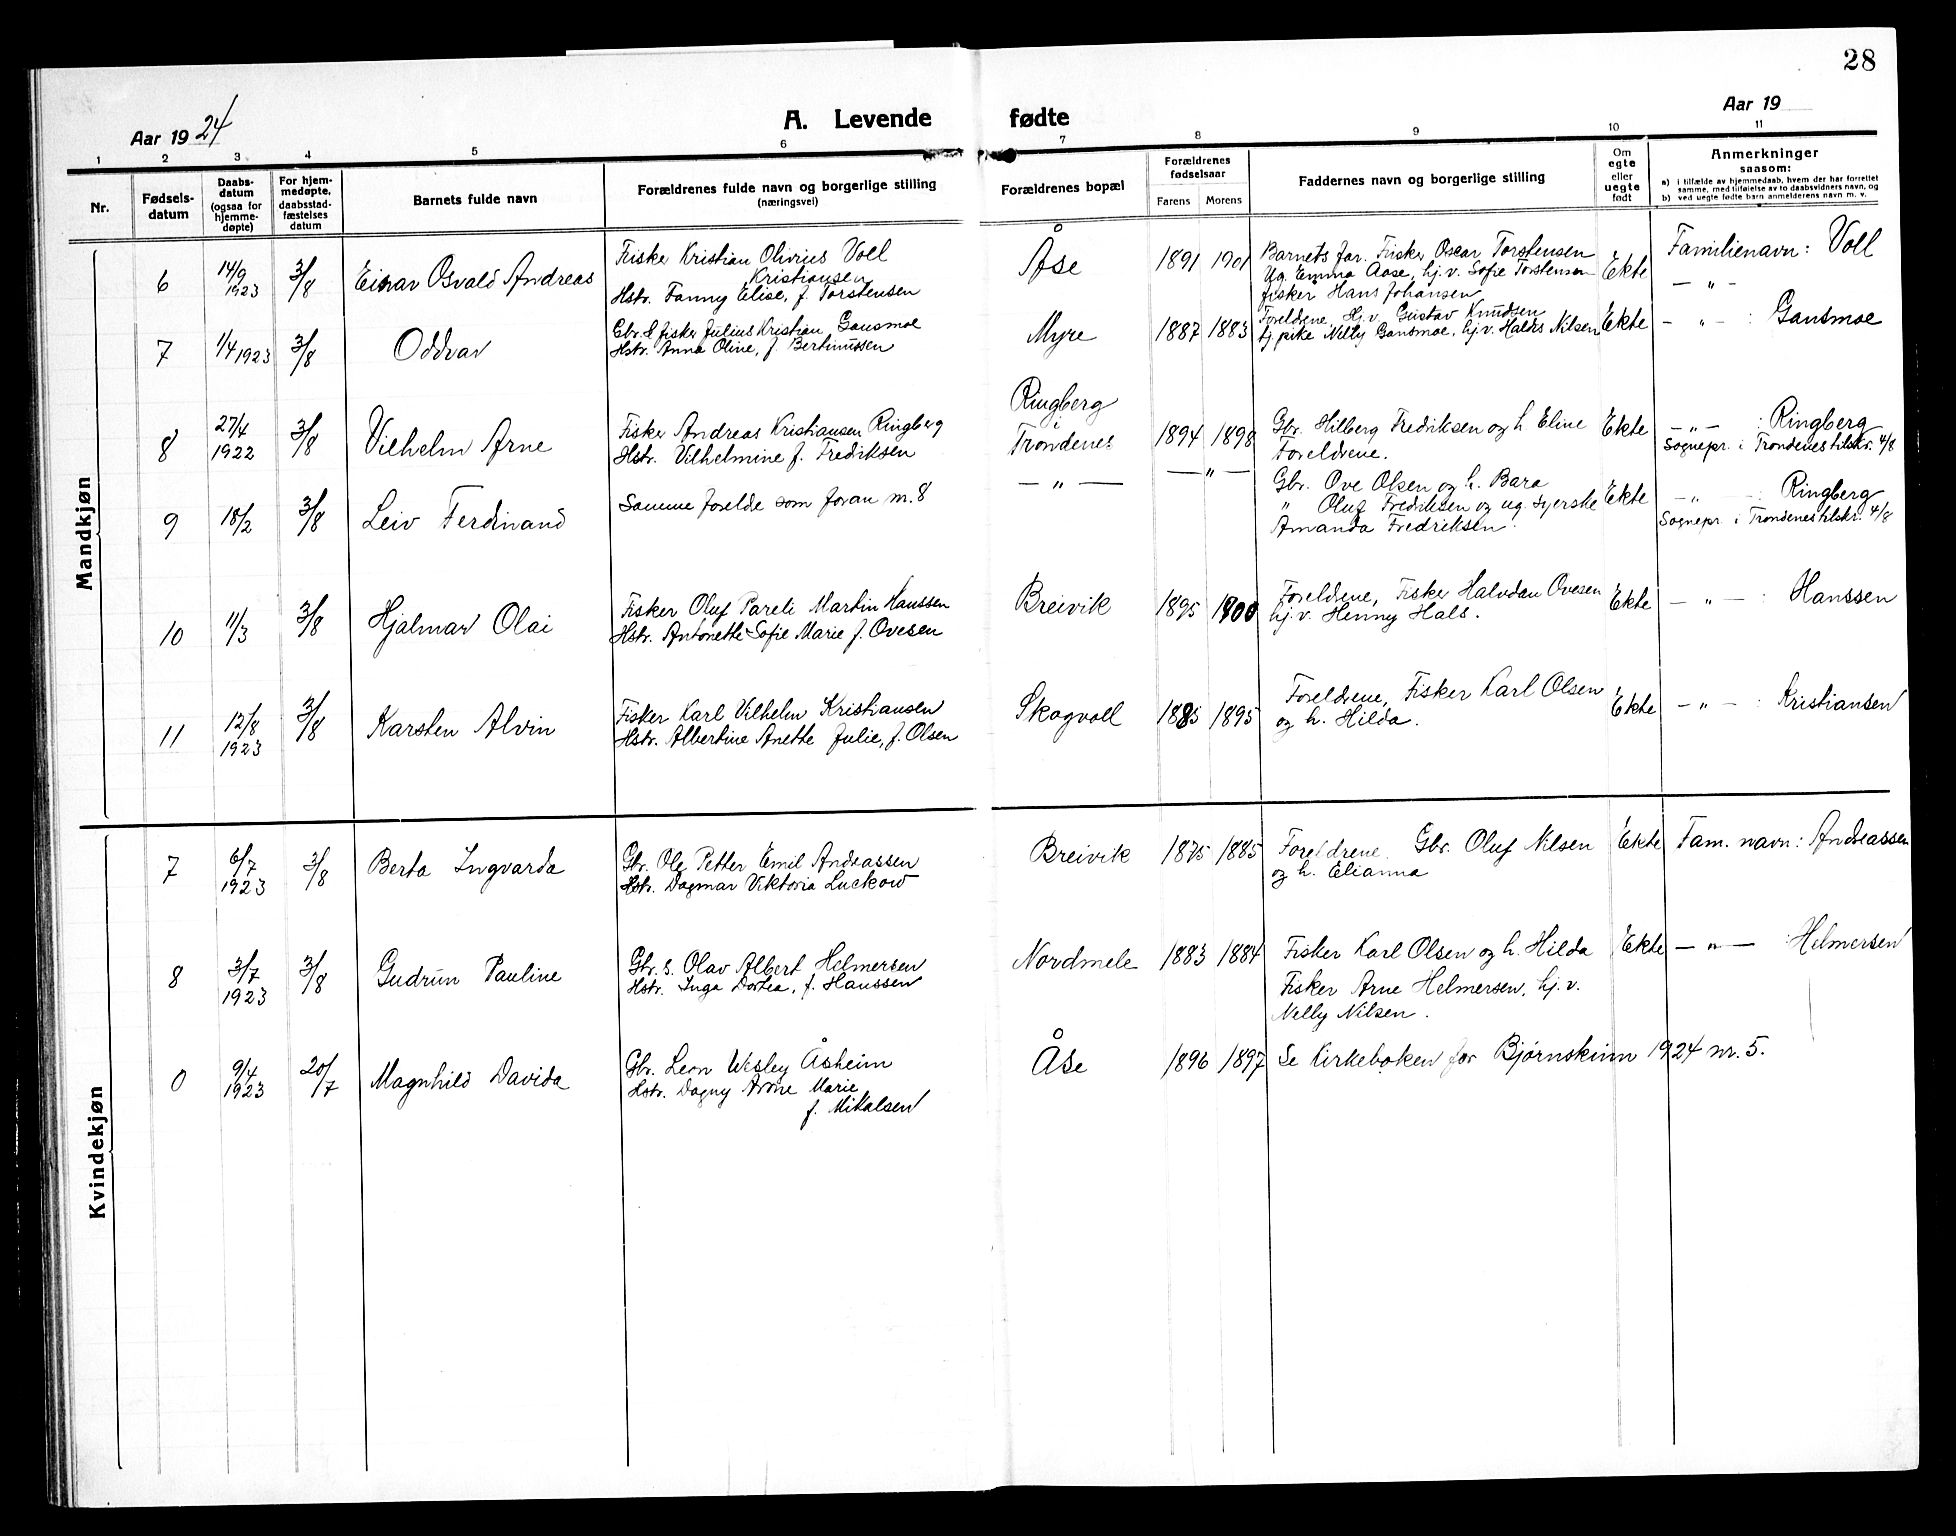 28
Aar 1924
A. Levende fødte
Aar 19
1 2 3 4 5 6 7 8 9 10 11
Nr.
Fødsels-
datum
Daabs-
datum
(ogsaa for
hjemme-
døpte)
For hjem-
medøpte,
daabsstad-
fæstelses
datum
Barnets fulde navn
Forældrenes fulde navn og borgerlige stilling
(næringsvei)
Forældrenes bopæl
Forældrenes
fødselsaar
Farens Morens
Faddernes navn og borgerlige stilling
Om
egte
eller
uegte
født
Anmerkninger
saasom:
a) i tilfælde av hjemmedaab, hvem der har forrettet
samme, med tilføielse av to daabsvidners navn, og
b) ved uegte fødte barn anmelderens navn m. v.
Mandkjøn
6 14/9 1923 3/8 Einar Osvald Andreas
Fisker Kristian Olivius Voll
Kristiansen
Hstr. Fanny Elise, f. Torstensen
Åse 1891 1901
Barnets far. Fisker Oscar Torstensen
Ug. Emma Aase, hj.v. Sofie Torstensen
fisker Hans Johansen
Ekte
Familienavn: Voll
— " —
7 1/4 1923 3/8 Oddvar
Gbr. & fisker Julius Kristian Gansmoe
Hstr. Anna Oline, f. Bertinussen
Myre 1887 1883
Foreldrene, Hj.v. Gustav Knudsen
tj.pike Nelly Gansmoe, hj.v. Haldis Nilsen
Ekte
— " — : Gansmoe
8 27/4 1922 3/8 Vilhelm Arne
Fisker Andreas Kristiansen Ringberg
Hstr. Vilhelmine f. Fredriksen
Ringberg
i
Trondenes
1894 1898
Gbr. Hilberg Fredriksen og h. Eline
Foreldrene.
Ekte
— " — : Ringberg
Sognepr. i Trondenes tilskr. 4/8
9 18/2 3/8 Leiv Ferdinand
Samme forelde som foran nr. 8
— " —
— " —
Gbr. Ove Olsen og h. Bara
" Oluf Fredriksen og ug. syerske
Amanda Fredriksen.
Ekte
— " — : Ringberg
Sognepr. i Trondenes tilskr. 4/8
10 11/3 3/8 Hjalmar Olai
Fisker Oluf Pareli Martin Hanssen
Hstr. Antonette Sofie Marie f. Ovesen
Breivik 1895 1900
Foreldrene, Fisker Halvdan Ovesen
hj.v. Henny Hals.
Ekte
— " — : Hanssen
11 12/8 1923 3/8 Karsten Alvin
Fisker Karl Vilhelm Kristiansen
Hstr. Albertine Anette Julie, f. Olsen
Skogvoll 1885 1895
Foreldrene, Fisker Karl Olsen
og h. Hilda.
Ekte
— " — : Kristiansen
Kvindekjøn
7 6/7 1923 3/8 Berta Ingvarda
Gbr. Ole Petter Emil Andreassen
Hstr. Dagmar Viktoria Luckow
Breivik 1875 1885
Foreldrene. Gbr. Oluf Nilsen
og h. Elianna
Ekte
Fam. navn: Andreassen
8 3/7 1923 3/8 Gudrun Pauline
Gbr. s. Olav Albert Helmersen
Hstr. Inga Dortea, f. Hanssen
Nordmele 1883 1884
Fisker Karl Olsen og h. Hilda
Fisker Arne Helmersen, hj.v.
Nelly Nilsen.
Ekte
— " — : Helmersen
0 9/4 1923 20/7 Magnhild Davida
Gbr. Leon Wesley Åsheim
Hstr. Dagny Anne Marie
f. Mikalsen
Åse 1896 1897
Se Kirkeboken for Bjørnskinn 1924 nr. 5.